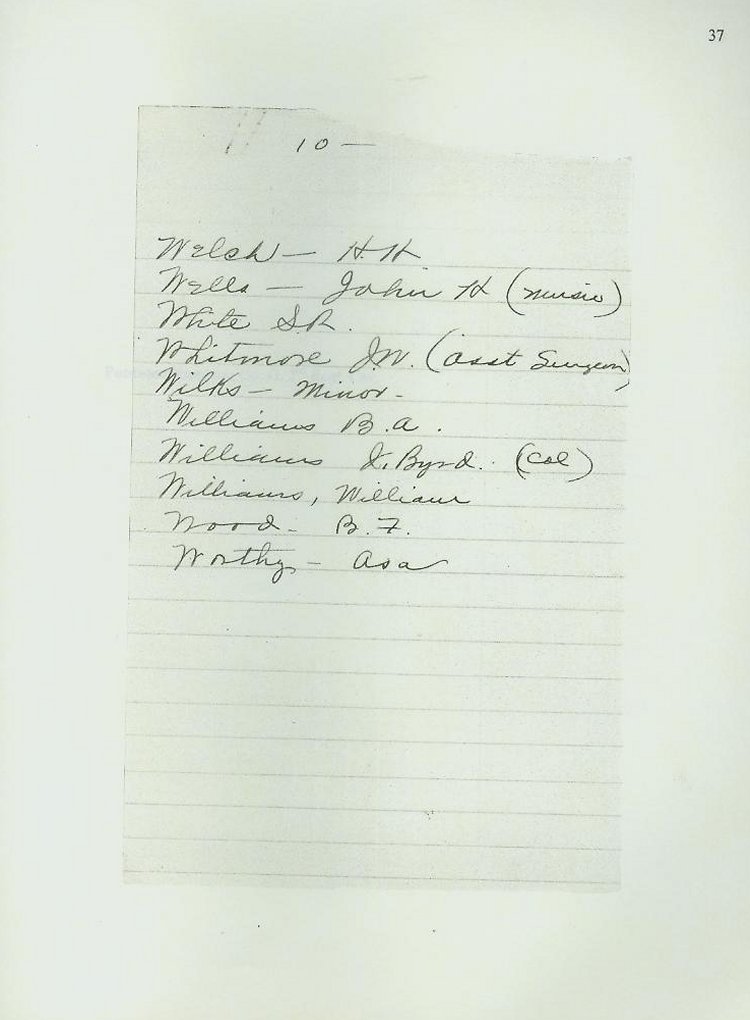 37
10 —
Welsh — H.H
Wells — John H (music)
White S.R.
Whitmore J.W. (asst Surgeon)
Wilks — Minor -
Williams B.a.
Williams J. Byrd. (Col)
Williams, William
Wood - B.F.
Worthy - Asa